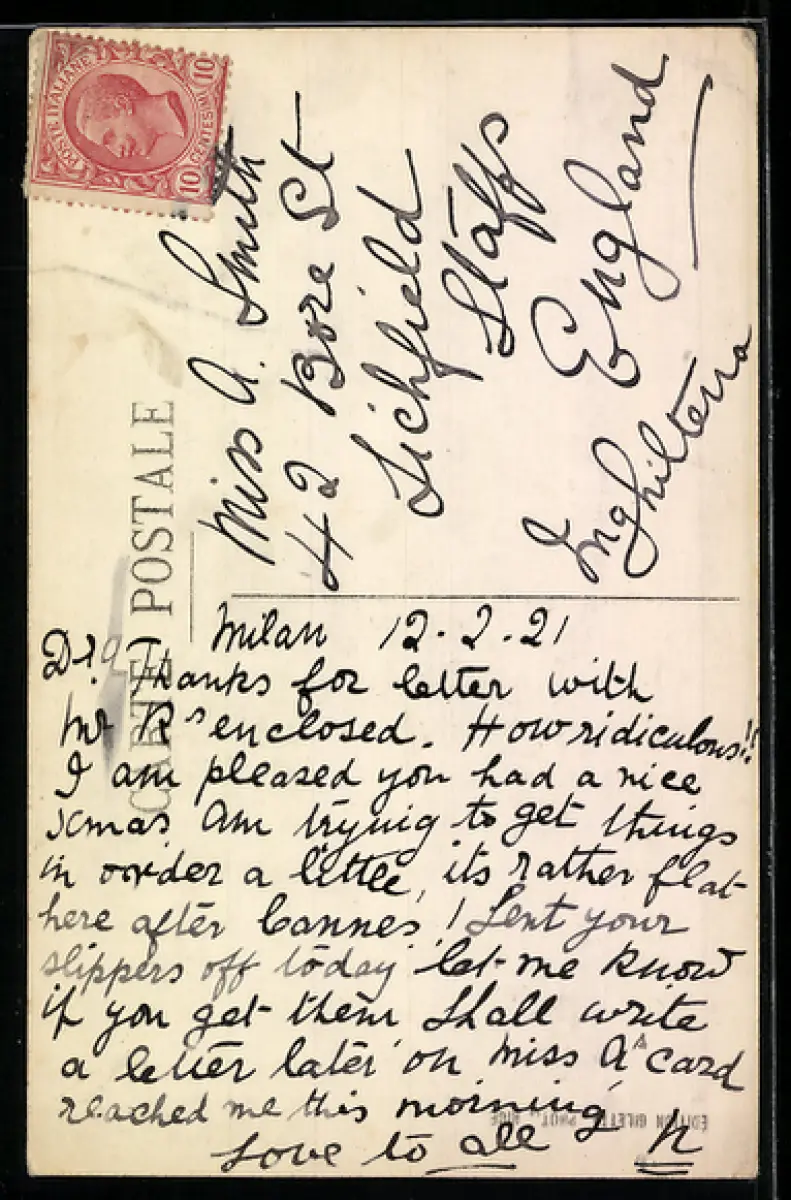 POSTE ITALIANE
10 CENTESIMI 10
Miss A. Smith
42 Bore St
Lichfield
Staffs
England
Inghilterra
CARTE POSTALE
Milan 12.2.21
Thanks for letter with
Mr Rs enclosed. How ridiculous!!
I am pleased you had a nice
xmas am trying to get things
in order a little, its rather flat
here after Cannes! Sent your
slippers off today let me know
if you get them shall write
a letter later on miss As card
reached me this morning
Love to all
EDITION GILETTA PHOT., NICE